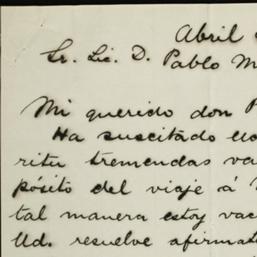 Abril
Sr. Lic. D. Pablo M
Mi querido don P
Ha suscitado Ud
ritu tremendas va
pósito del viaje á
tal manera estoy vac
Ud. resuelve afirmat